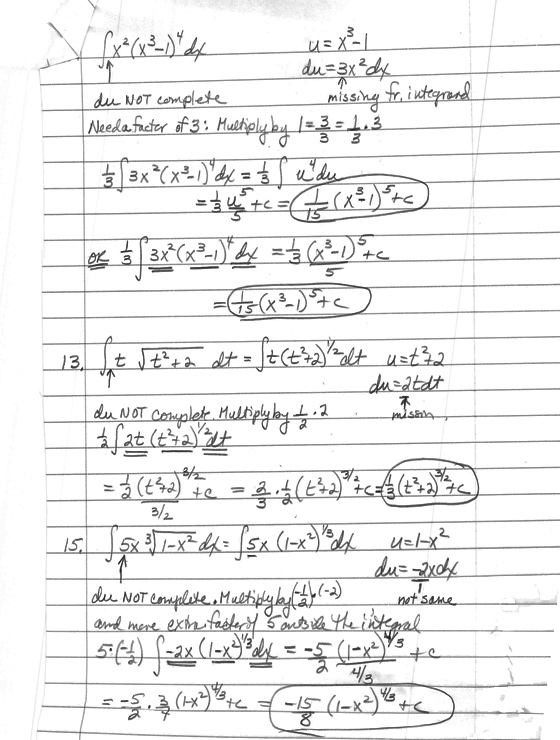 ∫x²(x³-1)⁴dx u = x³-1
du = 3x²dx
du NOT complete missing fr. integrand
Need a factor of 3: Multiply by 1 = 3/3 = 1/3 · 3
1/3 ∫ 3x²(x³-1)⁴dx = 1/3 ∫ u⁴du
= 1/3 u⁵/5 + c = 1/15 (x³-1)⁵ + c
OR 1/3 ∫ 3x²(x³-1)⁴dx = 1/3 (x³-1)⁵/5 + c
= 1/15 (x³-1)⁵ + c
13. ∫ t √(t²+2) dt = ∫t(t²+2)^1/2 dt u = t²+2
du = 2tdt
du NOT complet. Multiply by 1/2 · 2
1/2 ∫ 2t (t²+2)^1/2 dt
= 1/2 (t²+2)^3/2 / 3/2 + c = 2/3 · 1/2 (t²+2)^3/2 + c = 1/3 (t²+2)^3/2 + c
15. ∫ 5x ³√(1-x²) dx = ∫5x (1-x²)^1/3 dx u = 1-x²
du = -2xdx
du NOT complete. Multiply by (-1/2)·(-2) not same
and move extra factor of 5 outside the integral
5·(-1/2) ∫ -2x (1-x²)^1/3 dx = -5/2 (1-x²)^4/3 / 4/3 + c
= -5/2 · 3/4 (1-x²)^4/3 + c = -15/8 (1-x²)^4/3 + c